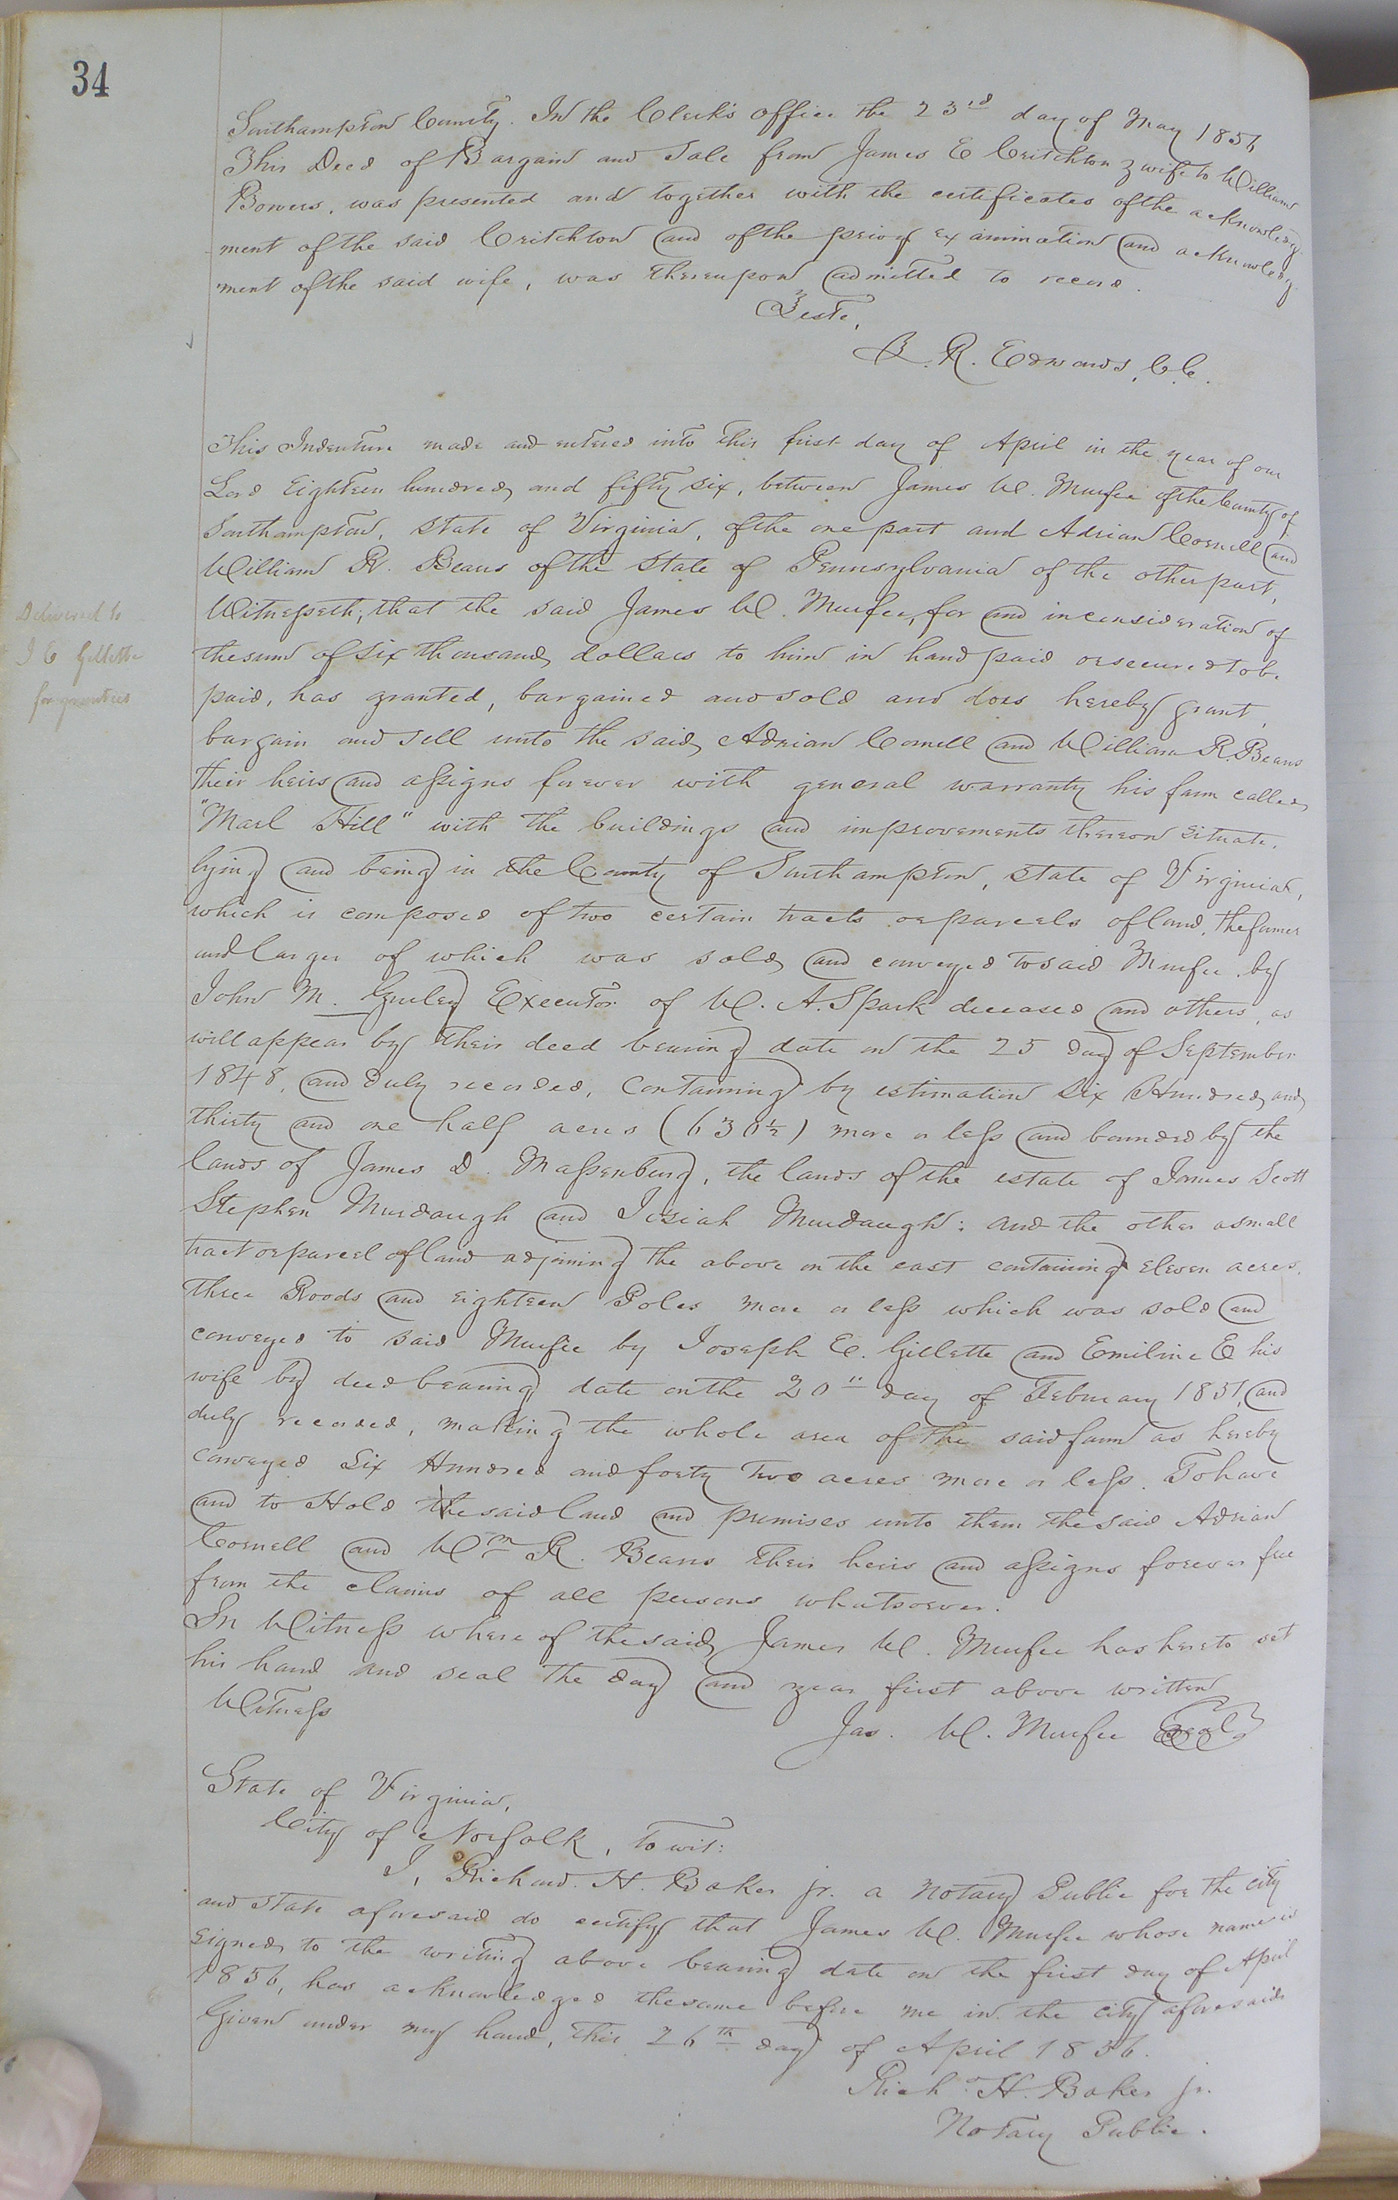 34
Southampton County. In the Clerk's office the 23rd day of May 1856
This Deed of Bargain and Sale from James E Critchton & wife to William
Bowers, was presented and together with the certificates of the acknowledg
ment of the said Critchton and of the privy examination and acknowledg
ment of the said wife, was thereupon admitted to record.
Teste,
L. R. Edwards, C.C.
This Indenture made and entered into this first day of April in the year of our
Lord Eighteen hundred and fifty six, between James W. Murfee of the County of
Southampton, State of Virginia, of the one part and Adrian Cornell and
William R. Beans of the State of Pennsylvania of the other part,
Witnesseth; that the said James W. Murfee, for and in consideration of
the sum of Six thousand dollars to him in hand paid or secured to be
paid, has granted, bargained and sold and does hereby grant,
bargain and sell unto the said Adrian Cornell and William R. Beans
their heirs and assigns forever with general warranty his farm called
"Marl Hill" with the buildings and improvements thereon situate,
lying and being in the County of Southampton, State of Virginia,
which is composed of two certain tracts or parcels of land, the former
and larger of which was sold and conveyed to said Murfee by
John M. Gurley Executor of W. A. Spark deceased and others, as
will appear by their deed bearing date on the 25 day of September
1848, and duly recorded, containing by estimation Six Hundred and
thirty and one half acres (630½) more or less and bounded by the
lands of James D. Massenburg, the lands of the estate of James Scott
Stephen Murdaugh and Josiah Murdaugh; and the other a small
tract or parcel of land adjoining the above on the east containing eleven acres,
three Roods and eighteen Poles more or less which was sold and
conveyed to said Murfee by Joseph E. Gillette and Emiline E his
wife by deed bearing date on the 20" day of February 1851, and
duly recorded, making the whole area of the said farm as hereby
conveyed Six Hundred and forty two acres more or less. To have
and to Hold the said land and premises unto them the said Adrian
Cornell and Wm R. Beans their heirs and assigns forever free
from the claims of all persons whatsoever.
In Witness where of the said James W. Murfee has hereto set
his hand and seal the day and year first above written
Witness
Jas. W. Murfee Seal
State of Virginia,
City of Norfolk, to wit:
I, Richard. H. Baker jr. a Notary Public for the city
and State aforesaid do certify that James W. Murfee whose name is
signed to the writing above bearing date on the first day of April
1856, has acknowledged the same before me in the city aforesaid
Given under my hand, this 26th day of April 1856.
Richd H. Baker jr.
Notary Public.
Delivered to
J E Gillette
for grantees